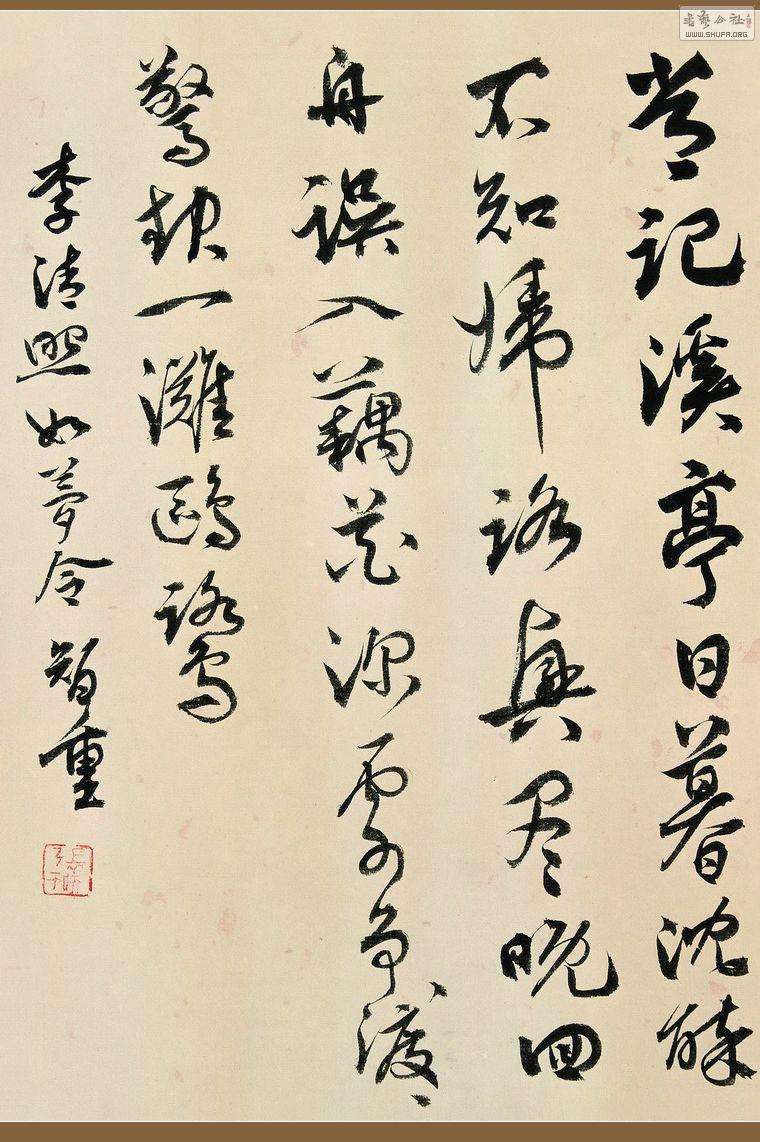 常記溪亭日暮沈醉
不知歸路興尽晚回
舟誤入藕花深處爭渡〻
驚起一灘鷗鷺
李清照如夢令 智重
書藝公社
WWW.SHUFA.ORG